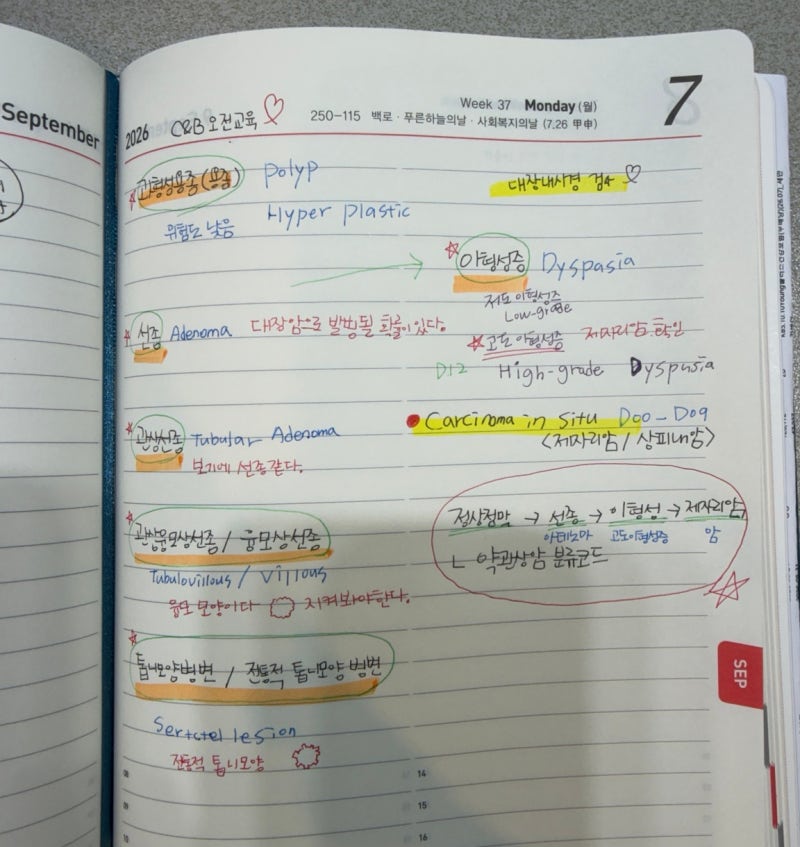 September
2026 C&B 오전교육
Week 37 Monday (월)
250-115 백로 · 푸른하늘의날 · 사회복지의날 (7.26 甲申)
7
과형성용종(용종) polyp
위험도 낮음 Hyper plastic
선종 Adenoma 대장암으로 발병될 확률이 있다.
관상선종 Tubular Adenoma
보기에 선종같다.
관상융모상선종 / 융모상선종
Tubulovillous / Villous
융모 모양이다 지켜봐야한다.
톱니모양병변 / 전통적 톱니모양 병변
Sertatel lesion
전통적 톱니모양
08
09
10
대장내시경 검사
이형성증 Dyspasia
저도 이형성증
Low-grade
고도 이형성증 제자리암 확인
D12 High-grade Dyspusia
Carcinoma in situ D00-D09
<제자리암 / 상피내암>
정상점막 → 선종 → 이형성 → 제자리암
아데노마 고도이형성증 암
ㄴ 약관상암 분류코드
SEP
14
15
16